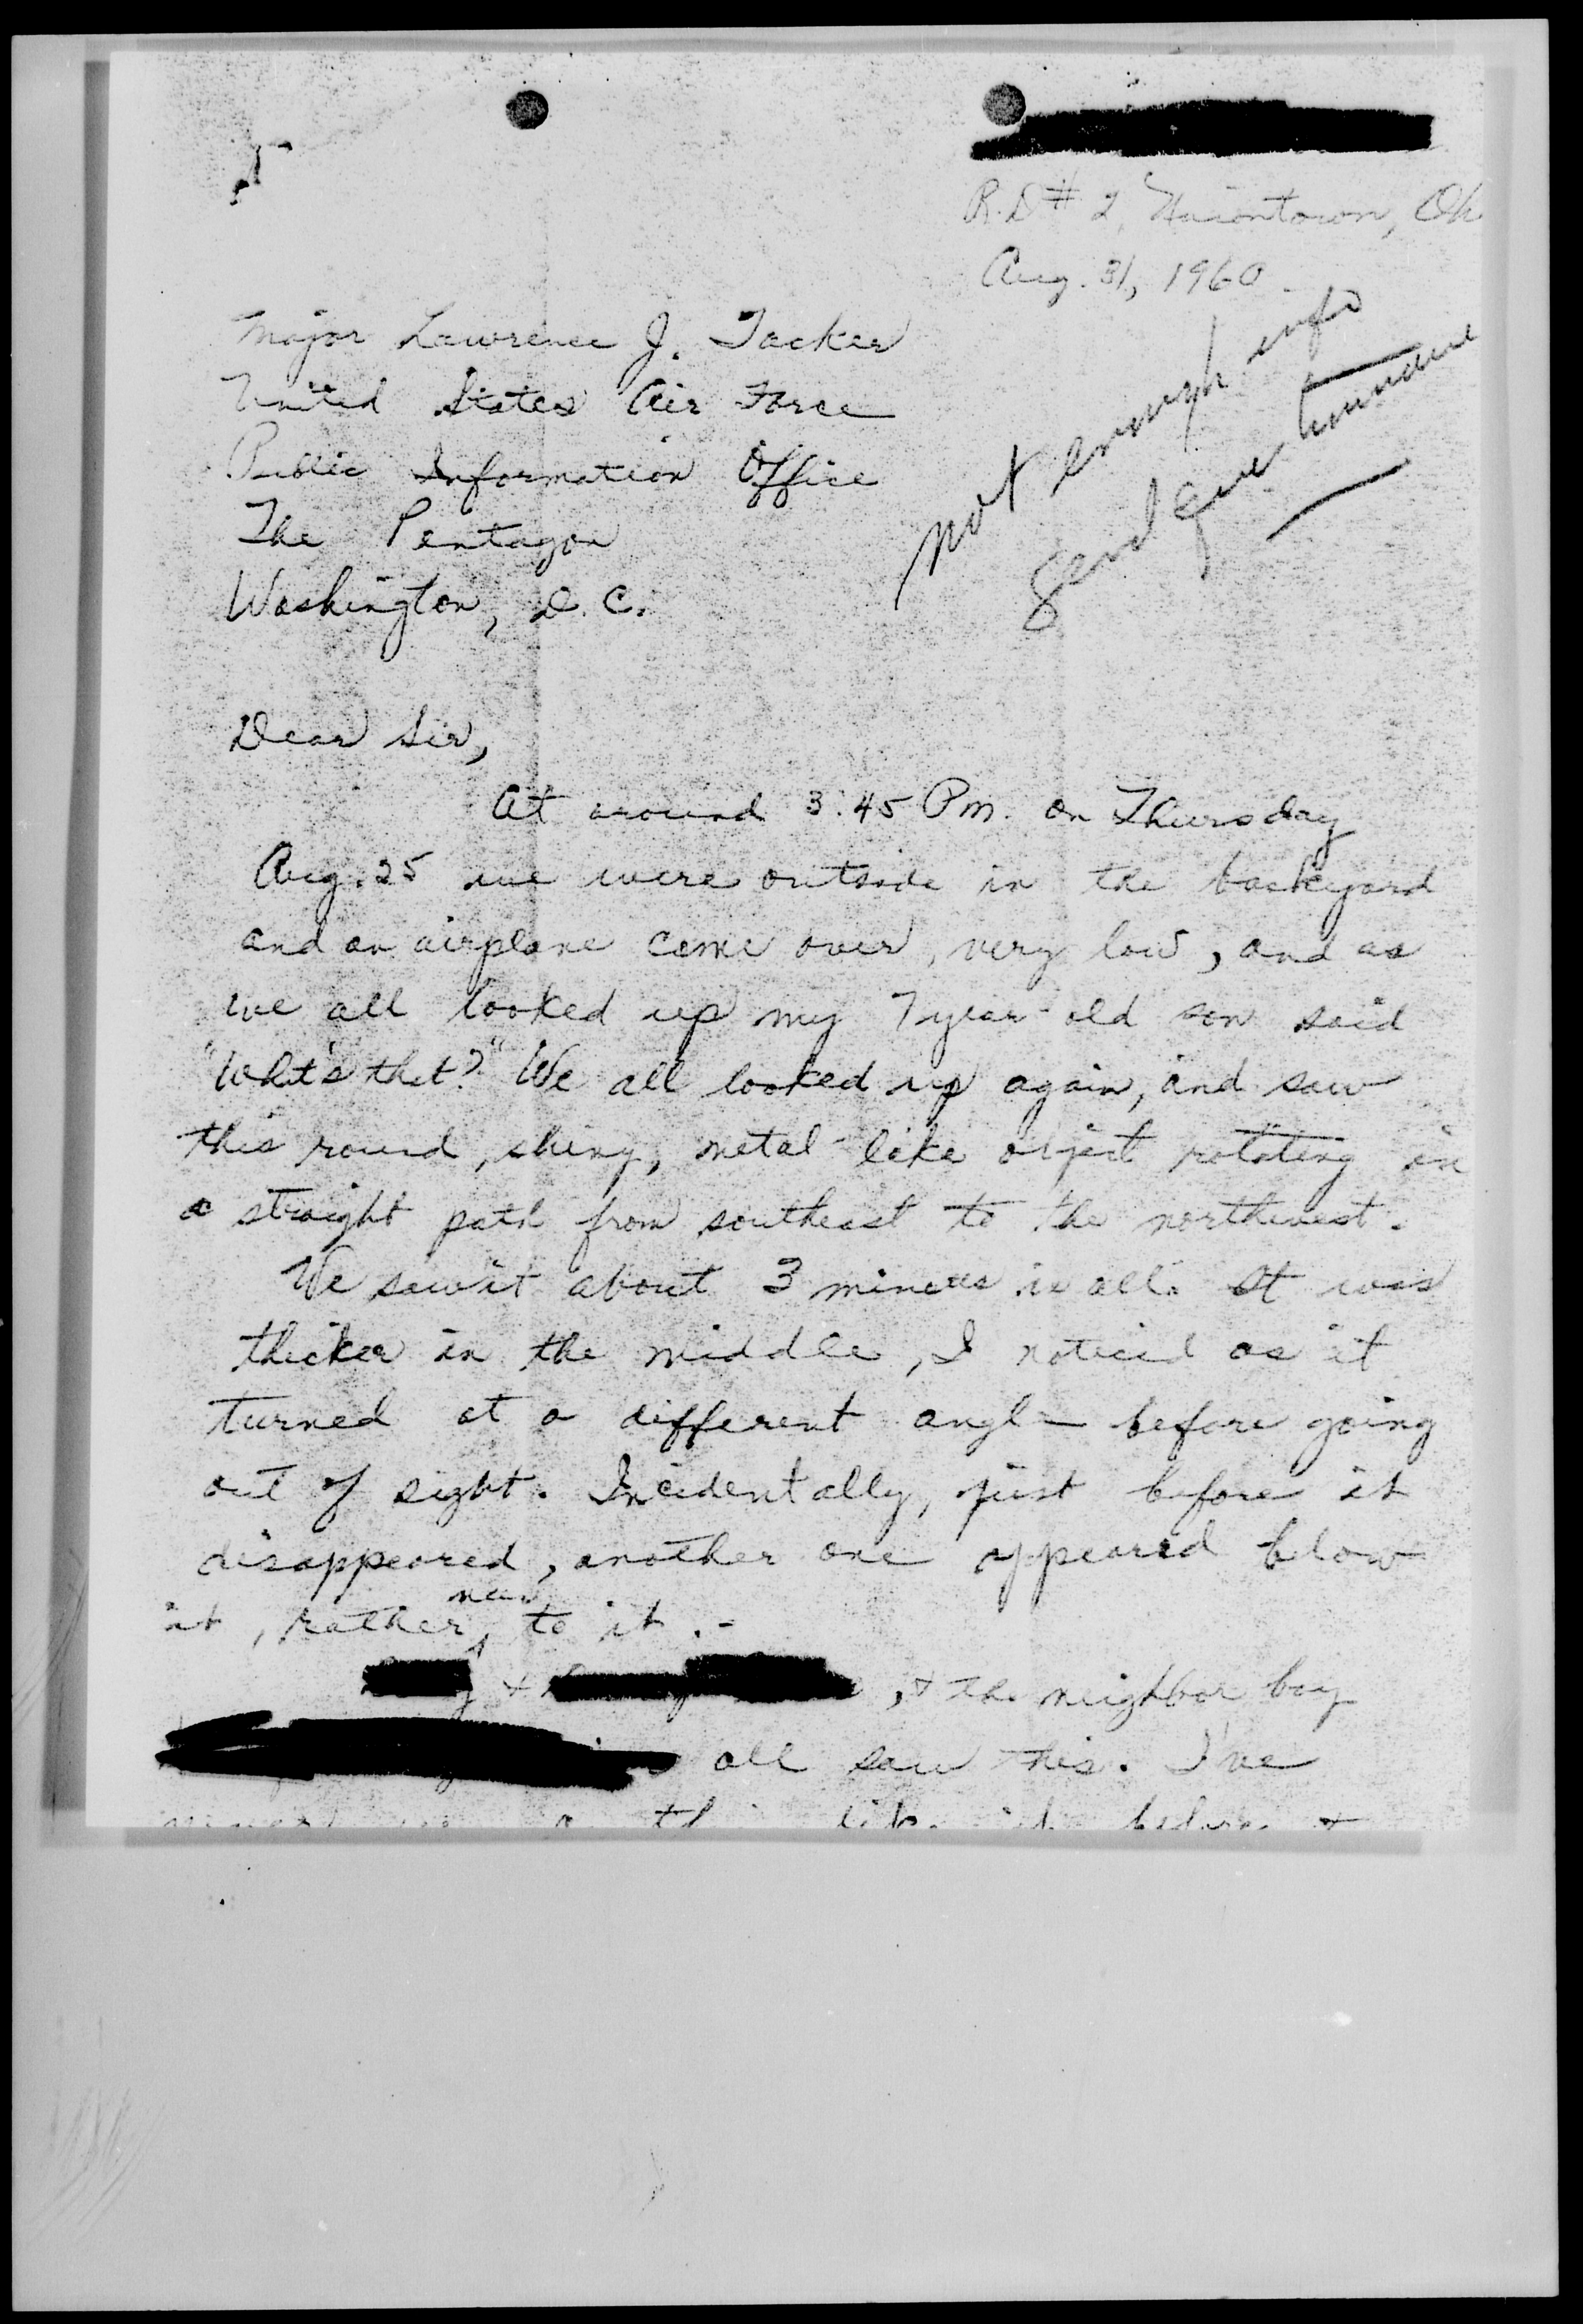 R.D # 2, Uniontown, Oh
Aug. 31, 1960
Major Lawrence J. Tacker
United States Air Force
Public Information Office
The Pentagon
Washington, D.C.
Not enough info
Send questionnaire
Dear Sir,
At around 3:45 P.m. on Thursday
Aug. 25 we were outside in the backyard
and an airplane come over, very low, and as
we all looked up my 7 year old son said
"What's that?" We all looked up again, and saw
this round, shiny, metal-like object rotating in
a straight path from southeast to the northwest.
We saw it about 3 minutes in all. It was
thicker in the middle, I noticed as it
turned at a different angle before going
out of sight. Incidentally, just before it
disappeared, another one appeared below
it, rather near to it.-
+ , + the neighbor boy
all saw this. I've